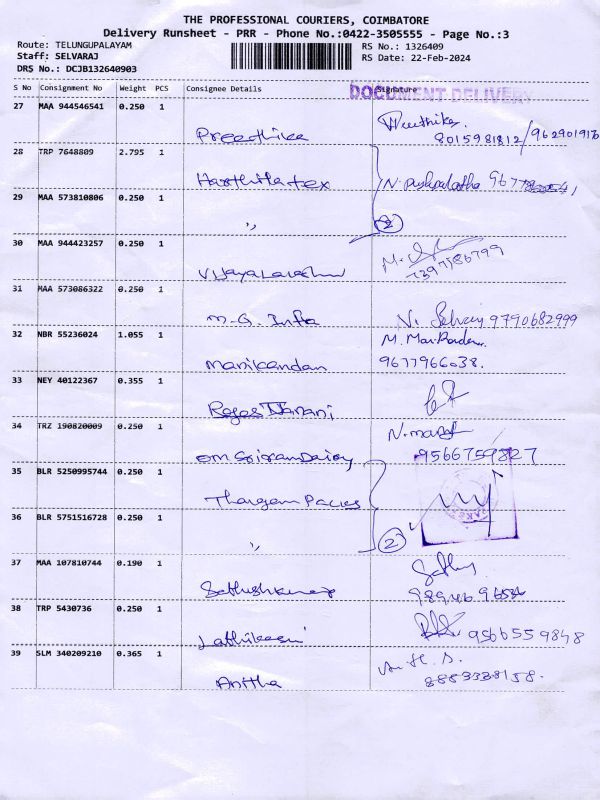 THE PROFESSIONAL COURIERS, COIMBATORE
Delivery Runsheet - PRR - Phone No.:0422-3505555 - Page No.:3
Route: TELUNGUPALAYAM RS No.: 1326409
Staff: SELVARAJ RS Date: 22-Feb-2024
DRS No.: DCJB132640903
S No Consignment No Weight PCS Consignee Details Signature
DOCUMENT DELIVERY
27 MAA 944546541 0.250 1
Preethika 8015981812/
28 TRP 7648809 2.795 1
Harthitha tex N. Pushpalatha
29 MAA 573810806 0.250 1
" 2
30 MAA 944423257 0.250 1
Vijayalakshmi 7397586799
31 MAA 573086322 0.250 1
M.G. Infra V. Selvaraj 9790682999
32 NBR 55236024 1.055 1
Manikandan 9677966038.
33 NEY 40122367 0.355 1
34 TRZ 190820009 0.250 1
OM Sriram Dairy 9566759827
35 BLR 5250995744 0.250 1
Thangam Packs
36 BLR 5751516728 0.250 1
" 2
37 MAA 107810744 0.190 1
Sathishkumar
38 TRP 5430736 0.250 1
9566559848
39 SLM 340209210 0.365 1
Anitha